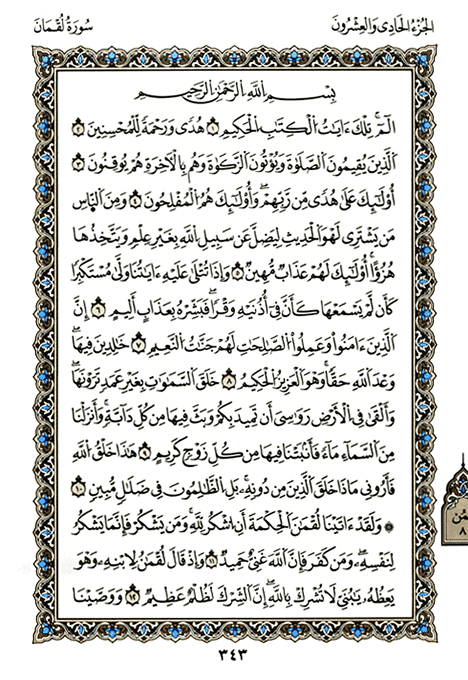 الجُزْءُ الحَادِى وَالعِشْرُونَ
سُورَةُ لُقْمَانَ
بِسْمِ اللَّهِ الرَّحْمَٰنِ الرَّحِيمِ
الٓمِّٓ تِلْكَ ءَايَٰتُ الْكِتَٰبِ الْحَكِيمِ ١ هُدًى وَرَحْمَةً لِّلْمُحْسِنِينَ ٢
الَّذِينَ يُقِيمُونَ الصَّلَوٰةَ وَيُؤْتُونَ الزَّكَوٰةَ وَهُم بِالْأَخِرَةِ هُمْ يُوقِنُونَ ٣
أُوْلَٰٓئِكَ عَلَىٰ هُدًى مِّن رَّبِّهِمْ وَأُوْلَٰٓئِكَ هُمُ الْمُفْلِحُونَ ٤ وَمِنَ النَّاسِ
مَن يَشْتَرِى لَهْوَ الْحَدِيثِ لِيُضِلَّ عَن سَبِيلِ اللَّهِ بِغَيْرِ عِلْمٍ وَيَتَّخِذُهَا
هُزُؤًا أُوْلَٰٓئِكَ لَهُمْ عَذَابٌ مُّهِينٌ ٥ وَإِذَا تُتْلَىٰ عَلَيْهِ ءَايَٰتُنَا وَلَّىٰ مُسْتَكْبِرًا
كَأَن لَّمْ يَسْمَعْهَا كَأَنَّ فِىٓ أُذْنَيْهِ وَقْرًا فَبَشِّرْهُ بِعَذَابٍ أَلِيمٍ ٦ إِنَّ
الَّذِينَ ءَامَنُواْ وَعَمِلُواْ الصَّٰلِحَٰتِ لَهُمْ جَنَّٰتُ النَّعِيمِ ٧ خَٰلِدِينَ فِيهَا
وَعْدَ اللَّهِ حَقًّا وَهْوَ الْعَزِيزُ الْحَكِيمُ ٨ خَلَقَ السَّمَٰوَٰتِ بِغَيْرِ عَمَدٍ تَرَوْنَهَا
وَأَلْقَىٰ فِى الْأَرْضِ رَوَٰسِىَ أَن تَمِيدَ بِكُمْ وَبَثَّ فِيهَا مِن كُلِّ دَآبَّةٍ وَأَنزَلْنَا
مِنَ السَّمَآءِ مَآءً فَأَنۢبَتْنَا فِيهَا مِن كُلِّ زَوْجٍ كَرِيمٍ ٩ هَٰذَا خَلْقُ اللَّهِ
فَأَرُونِى مَاذَا خَلَقَ الَّذِينَ مِن دُونِهِۦ بَلِ الظَّٰلِمُونَ فِى ضَلَٰلٍ مُّبِينٍ ١٠
۞ وَلَقَدْ ءَاتَيْنَا لُقْمَٰنَ الْحِكْمَةَ أَنُ اشْكُرْ لِلَّهِ وَمَن يَشْكُرْ فَإِنَّمَا يَشْكُرُ
لِنَفْسِهِۦ وَمَن كَفَرَ فَإِنَّ اللَّهَ غَنِىٌّ حَمِيدٌ ١١ وَإِذْ قَالَ لُقْمَٰنُ لِابْنِهِۦ وَهْوَ
يَعِظُهُۥ يَٰبُنَىِّ لَا تُشْرِكْ بِاللَّهِ إِنَّ الشِّرْكَ لَظُلْمٌ عَظِيمٌ ١٢ وَوَصَّيْنَا
٨
٣٤٣